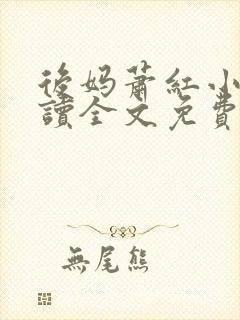 後妈蕭紅小
讀全文免費
無尾熊